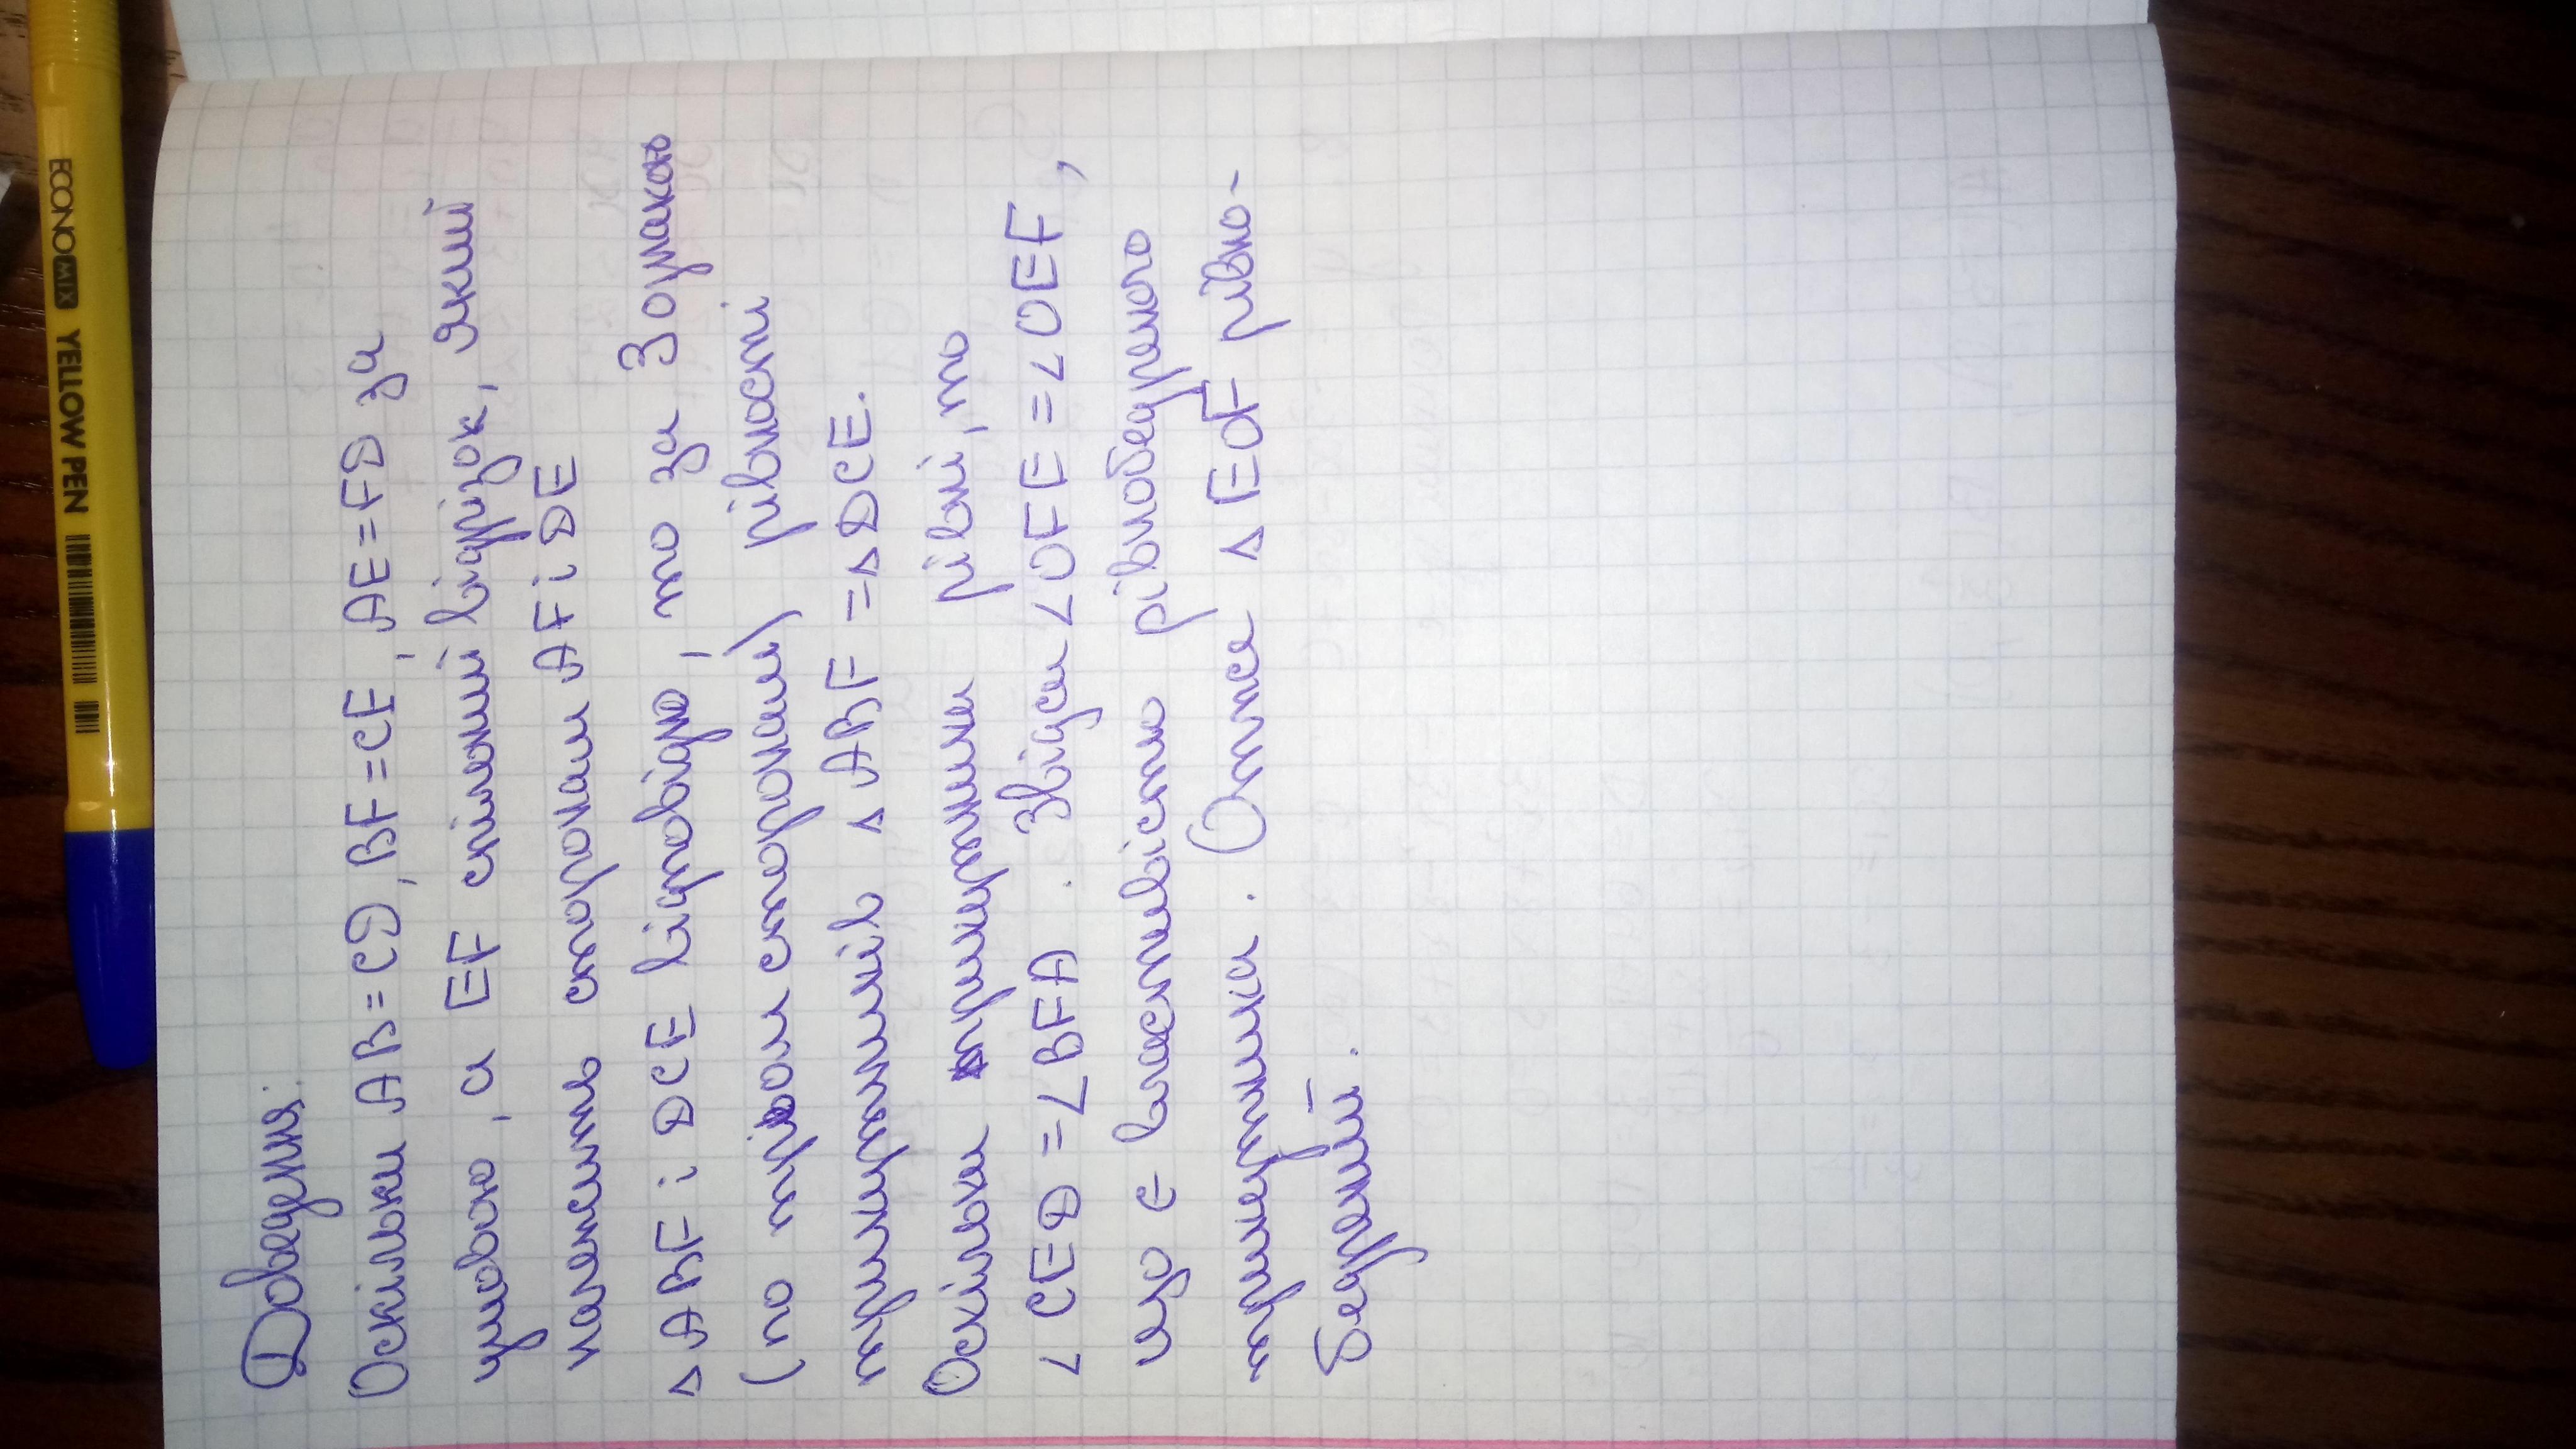 ECONOMIX YELLOW PEN
Доведення:
Оскільки AB=CD, BF=CE, AE=FD за
умовою, а EF спільний відрізок, який
належить сторонам AF і DE
△ABF і DCE відповідно, то за 3 ознакою
(по трьом сторонам) рівності
трикутників △ABF=△DCE.
Оскільки трикутники рівні, то
∠CED=∠BFA. Звідси ∠OFE=∠OEF,
що є властивістю рівнобедреного
трикутника. Отже △EOF рівно-
бедрений.